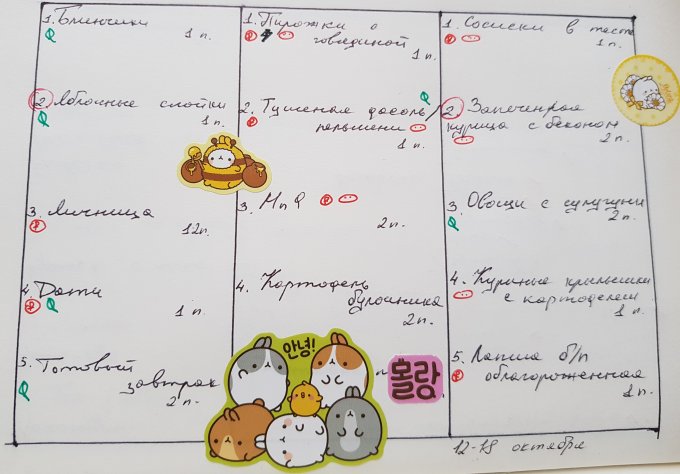 1. Блинчики
1 п.
2. Яблочные слойки
1 п.
3. Яичница
12 п.
4. Дати
1 п.
5. Готовый
завтрак
2 п.
1. Пирожки с
говядиной
1 п.
2. Тушеная фасоль/
пельмени
1 п.
3. МпФ
2 п.
4. Картофель
булошника
2 п.
안녕!
몰랑
1. Сосиски в тесте
1 п.
2. Запеченная
курица с беконом
2 п.
3. Овощи с сулугуни
2 п.
4. Куриные крылышки
с картофелем
1 п.
5. Лапша б/п
облагороженная
1 п.
12-18 октября